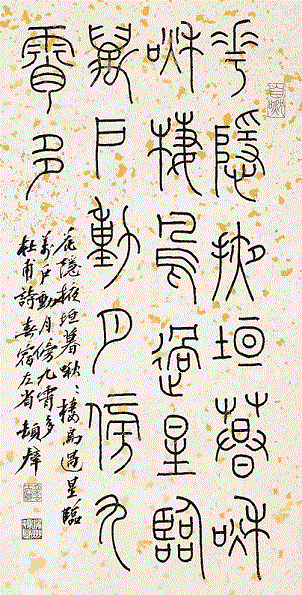 花隱掖垣暮啾
啾棲鳥過星臨
萬戶動月傍九
霄多
花隱掖垣暮啾〻棲鳥過星臨
萬戶動月傍九霄多
杜甫詩春宿左省